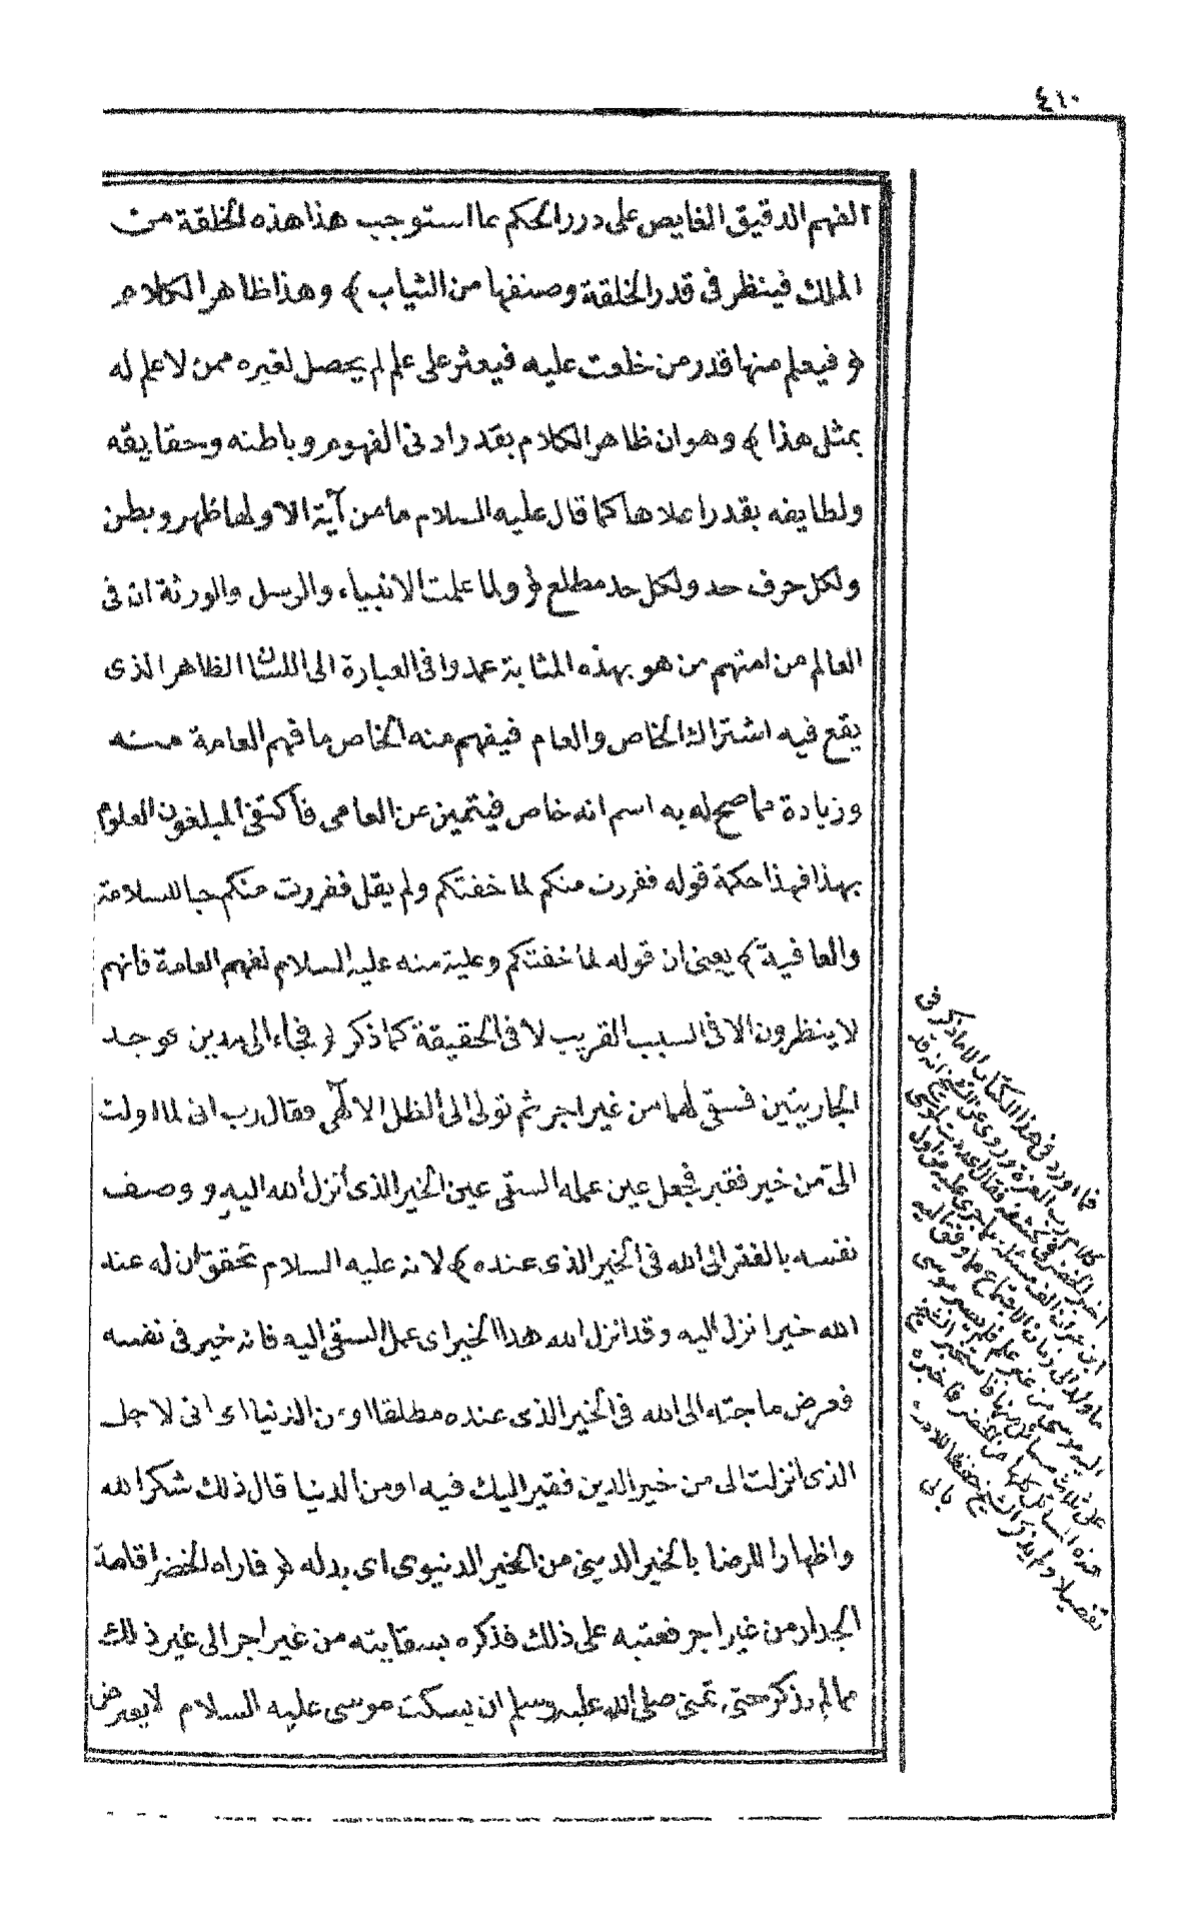 ٤١٠
الفهم الدقيق الغايص على درر الحكم بما استوجب هذا هذه الخلقة من
الملك فينظر فى قدر الخلقة وصنفها من الثياب ﴾ وهذا ظاهر الكلام
﴿ فيعلم منها قدر من خلعت عليه فيعثر على علم لم يحصل لغيره ممن لا علم له
بمثل هذا ﴾ وهو ان ظاهر الكلام بقدر ادنى الفهوم وباطنه وحقايقه
ولطايفه بقدر اعلاها كما قال عليه السلام ما من آية الا ولها ظهر وبطن
ولكل حرف حد ولكل حد مطلع ﴿ ولما علمت الانبياء والرسل والورثة ان فى
العالم من امتهم من هو بهذه المثابة عمدوا فى العبارة الى اللسان الظاهر الذى
يقع فيه اشتراك الخاص والعام فيفهم منه الخاص ما فهم العامة منه
وزيادة مما صح له به اسم انه خاص فيتميز عن العامى فاكتفى المبلغون العلوم
بهذا فهذا حكمة قوله ففررت منكم لما خفتكم ولم يقل ففررت منكم حبا للسلامة
والعافية ﴾ يعنى ان قوله لما خفتكم وعلية منه عليه السلام لفهم العامة فانهم
لا ينظرون الا فى السبب القريب لا فى الحقيقة كما ذكر ﴿ فجاء الى مدين فوجد
الجاريتين فسقى لهما من غير اجر ثم تولى الى الظل الالهى فقال رب انى لما انزلت
الىّ من خير فقير فجعل عين عمله السقى عين الخير الذى أنزل الله اليه و وصف
نفسه بالفقر الى الله فى الخير الذى عنده ﴾ لانه عليه السلام تحقق ان له عند
الله خيرا نزل اليه وقد انزل الله هذا الخير اى عمل السقى اليه فانه خير فى نفسه
فعرض حاجته الى الله فى الخير الذى عنده مطلقا او من الدنيا اى انى لاجل
الذى انزلت الى من خير الدين فقير اليك فيه او من الدنيا قال ذلك شكرا لله
واظهارا للرضا بالخير الدينى من الخير الدنيوى اى بدله ﴿ فاراه الخضر اقامة
الجدار من غير اجر فعتبه على ذلك فذكره بسقايته من غير اجر الى غير ذلك
مما لم يذكر حتى تمنى صلى الله عليه وسلم ان يسكت موسى عليه السلام لا يعرض
فما اورد فى هذا الكتاب الا ما ذكر فى
كلام رب العزة وروى عن الشيخ انه قد
اجتمع الخضر فى كشفه فقال اعددت لموسى
ابن عمران الف مسئلة مما جرى عليه من اول
ما ولد الى زمان الاجتماع مما وفقنا اليه
اليه موسى من غير علم فلم يصبر موسى
على ثلاث مسائل منها فاستخبر الشيخ
هذه المسائل كلها من الخضر فاخبره
تفصيلا ولم يذكر الشيخ حفظا للادب
بالى